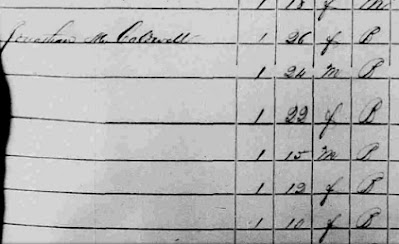 1 18 f M
Jonathan M. Caldwell 1 26 f B
1 24 m B
1 22 f B
1 15 m B
1 12 f B
1 10 f B